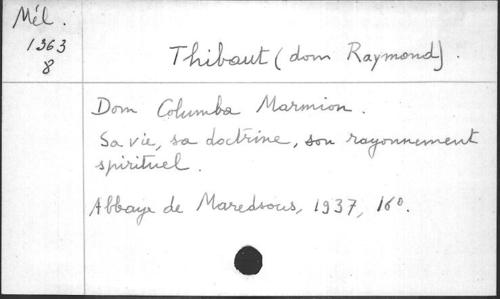 Mél.
1363
8
Thibaut (dom Raymond).
Dom Columba Marmion.
Sa vie, sa doctrine, son rayonnement
spirituel.
Abbaye de Maredsous, 1937, 16°.